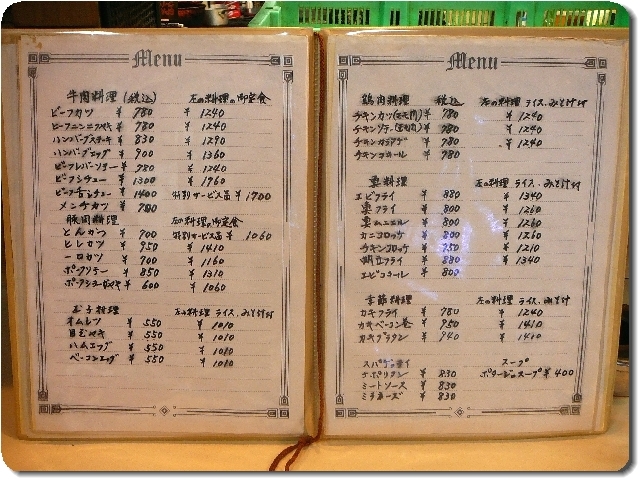 Menu
牛肉料理 (税込) 左の料理の御定食
ビーフカツ ¥ 780 ¥ 1240
ビーフニンニクヤキ ¥ 780 ¥ 1240
ハンバーグステーキ ¥ 830 ¥ 1290
ハンバーグエッグ ¥ 900 ¥ 1360
ビーフレバーソテー ¥ 780 ¥ 1240
ビーフシチュー ¥ 1300 ¥ 1760
ビーフ舌シチュー ¥ 1400 特別サービス品 ¥ 1700
メンチカツ ¥ 780
豚肉料理 左の料理の御定食
とんかつ ¥ 700 特別サービス品 ¥ 1060
ヒレカツ ¥ 950 ¥ 1410
一口カツ ¥ 700 ¥ 1160
ポークソテー ¥ 850 ¥ 1310
ポークショーガヤキ ¥ 600 ¥ 1060
玉子料理 左の料理 ライス、みそ汁付
オムレツ ¥ 550 ¥ 1010
目玉ヤキ ¥ 550 ¥ 1010
ハムエッグ ¥ 550 ¥ 1010
ベーコンエッグ ¥ 550 ¥ 1010
Menu
鶏肉料理 税込 左の料理 ライス、みそ汁付
チキンカツ ¥ 780 ¥ 1240
チキンソテー ¥ 780 ¥ 1240
チキン ¥ 780 ¥ 1240
チキンコキール ¥ 780
魚料理 左の料理 ライス、みそ汁付
エビフライ ¥ 880 ¥ 1340
魚フライ ¥ 800 ¥ 1260
魚ムニエル ¥ 800 ¥ 1260
カニコロッケ ¥ 800 ¥ 1260
チキンコロッケ ¥ 750 ¥ 1210
帆立フライ ¥ 880 ¥ 1340
エビコキール ¥ 800
季節料理 左の料理 ライス、みそ汁付
カキフライ ¥ 780 ¥ 1240
カキベーコン巻 ¥ 950 ¥ 1410
カキグラタン ¥ 940 ¥ 1410
スパゲッティ スープ
ナポリタン ¥ 830 ポタージュスープ ¥ 400
ミートソース ¥ 830
ミラネーズ ¥ 830